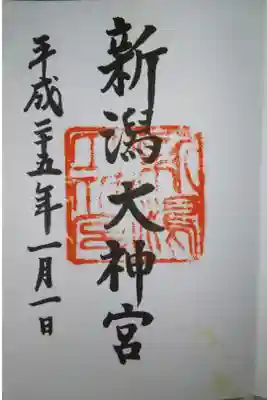 新潟大神宮
平成二十五年一月一日